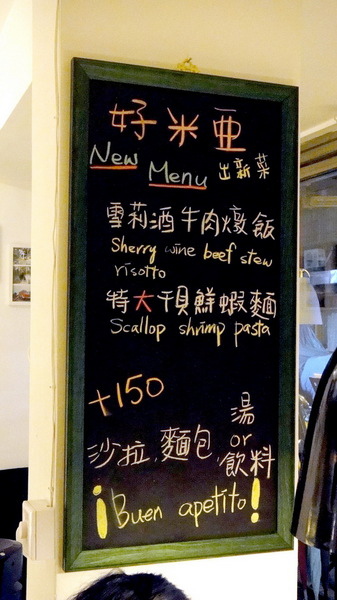 好米亜
New Menu 出新菜
雪莉酒牛肉燉飯
Sherry wine beef stew
risotto
特大干貝鮮蝦麵
Scallop shrimp pasta
+150
沙拉,麵包,湯or飲料
¡Buen apetito!